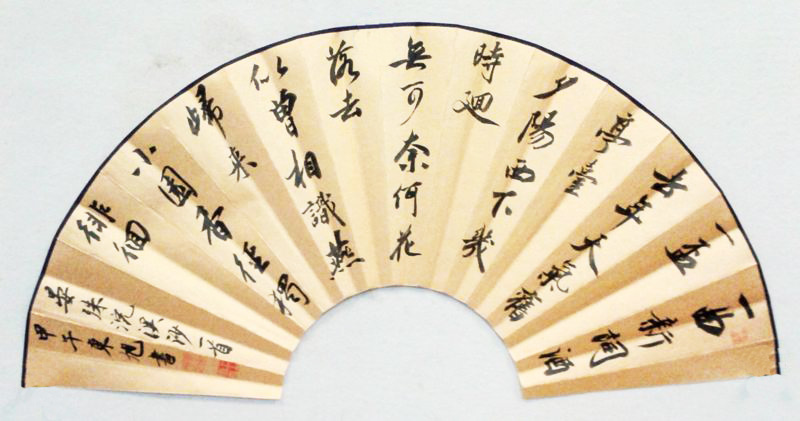 一曲新詞酒
一盃
去年天氣舊
亭臺
夕陽西下幾
時迴
無可奈何花
落去
似曾相識燕
歸来
小園香徑獨
徘徊
晏殊浣溪沙一首
甲午東旭書